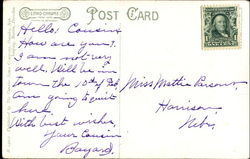 POST CARD
Hello! Cousin
How are you?
I am not very
well. Will be in
town the 10th
are going to quit
here
With best wishes,
Your Cousin
Bayard.
Miss Mattie Parsons,
Harrison,
Nebr.